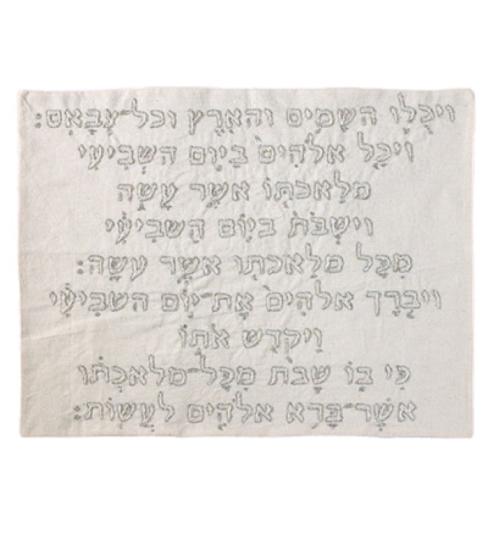 וַיְכֻלּוּ הַשָּׁמַיִם וְהָאָרֶץ וְכָל־צְבָאָם:
וַיְכַל אֱלֹהִים בַּיּוֹם הַשְּׁבִיעִי
מְלַאכְתּוֹ אֲשֶׁר עָשָׂה
וַיִּשְׁבֹּת בַּיּוֹם הַשְּׁבִיעִי
מִכָּל מְלַאכְתּוֹ אֲשֶׁר עָשָׂה:
וַיְבָרֶךְ אֱלֹהִים אֶת־יוֹם הַשְּׁבִיעִי
וַיְקַדֵּשׁ אֹתוֹ
כִּי בוֹ שָׁבַת מִכָּל־מְלַאכְתּוֹ
אֲשֶׁר־בָּרָא אֱלֹהִים לַעֲשׂוֹת: